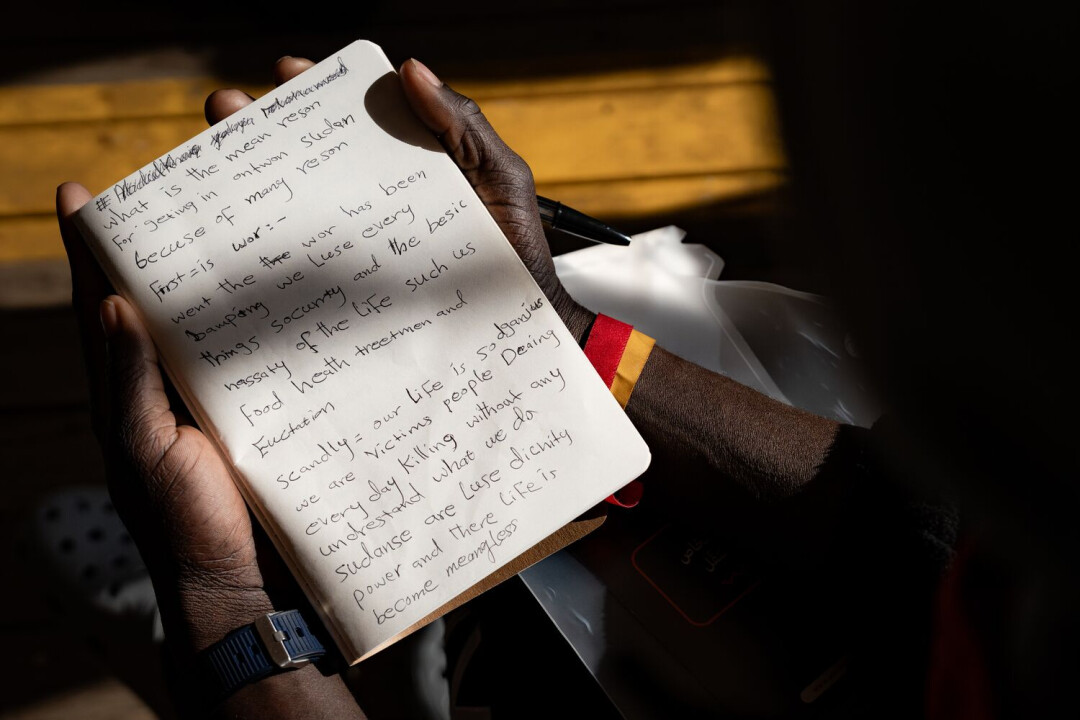 what is the mean reson
For getting in antwon sudan
becuse of many reson
First = is wor:-
went the wor has been
bamping we Luse every
things socurity and the besic
nassaty of the Life such us
Food heath treetmen and
Euctation
scandly = our Life is so dganjius
we are victims people Deaing
every day killing without any
undrestand what we do
sudanse are Luse dichity
power and there Life is
become meangless